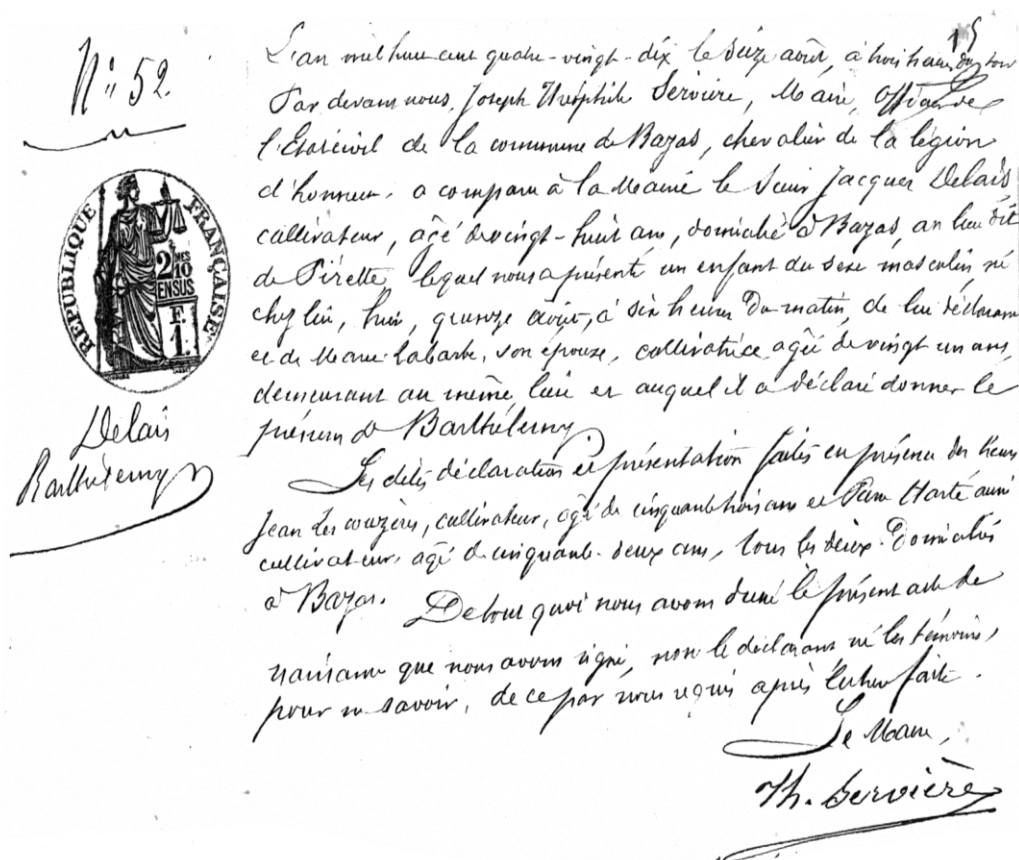 15
N° 52.
L'an mil huit cent quatre-vingt-dix le seize août, à trois heures du soir
Par devant nous, Joseph Théophile Servière, Maire, Officier de
l'Etat civil de la commune de Bazas, chevalier de la légion
d'honneur, a comparu à la Mairie le sieur Jacques Delais,
cultivateur, âgé de vingt-huit ans, domicilié à Bazas, au lieu dit
de Pirette, lequel nous a présenté un enfant du sexe masculin, né
chez lui, hier, quinze août, à six heures du matin, de lui déclarant
et de Marie Labarbe, son épouze, cultivatrice, agée de vingt un ans,
demeurant au même lieu et auquel il a déclaré donner le
prénom de Barthélemy.
Les dites déclaration et présentation faites en présence des sieurs
Jean Lescouzères, cultivateur, agé de cinquante trois ans et Pierre Harté aussi
cultivateur, agé de cinquante-deux ans, tous les deux domiciliés
à Bazas. De tout quoi nous avons dressé le présent acte de
naissance que nous avons signé, non le déclarant ni les témoins,
pour ne savoir, de ce par nous requis après lecture faite.
Le Maire,
Th. Servière
REPUBLIQUE FRANÇAISE
2/10
EN SUS
F.
1.
Delais
Barthélemy